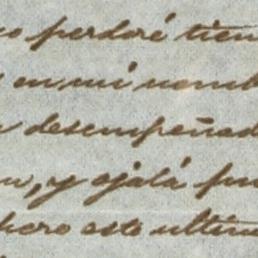 perdoré tiem
en mi nomb
desempeñad
y ojalá pu
pero este ultim